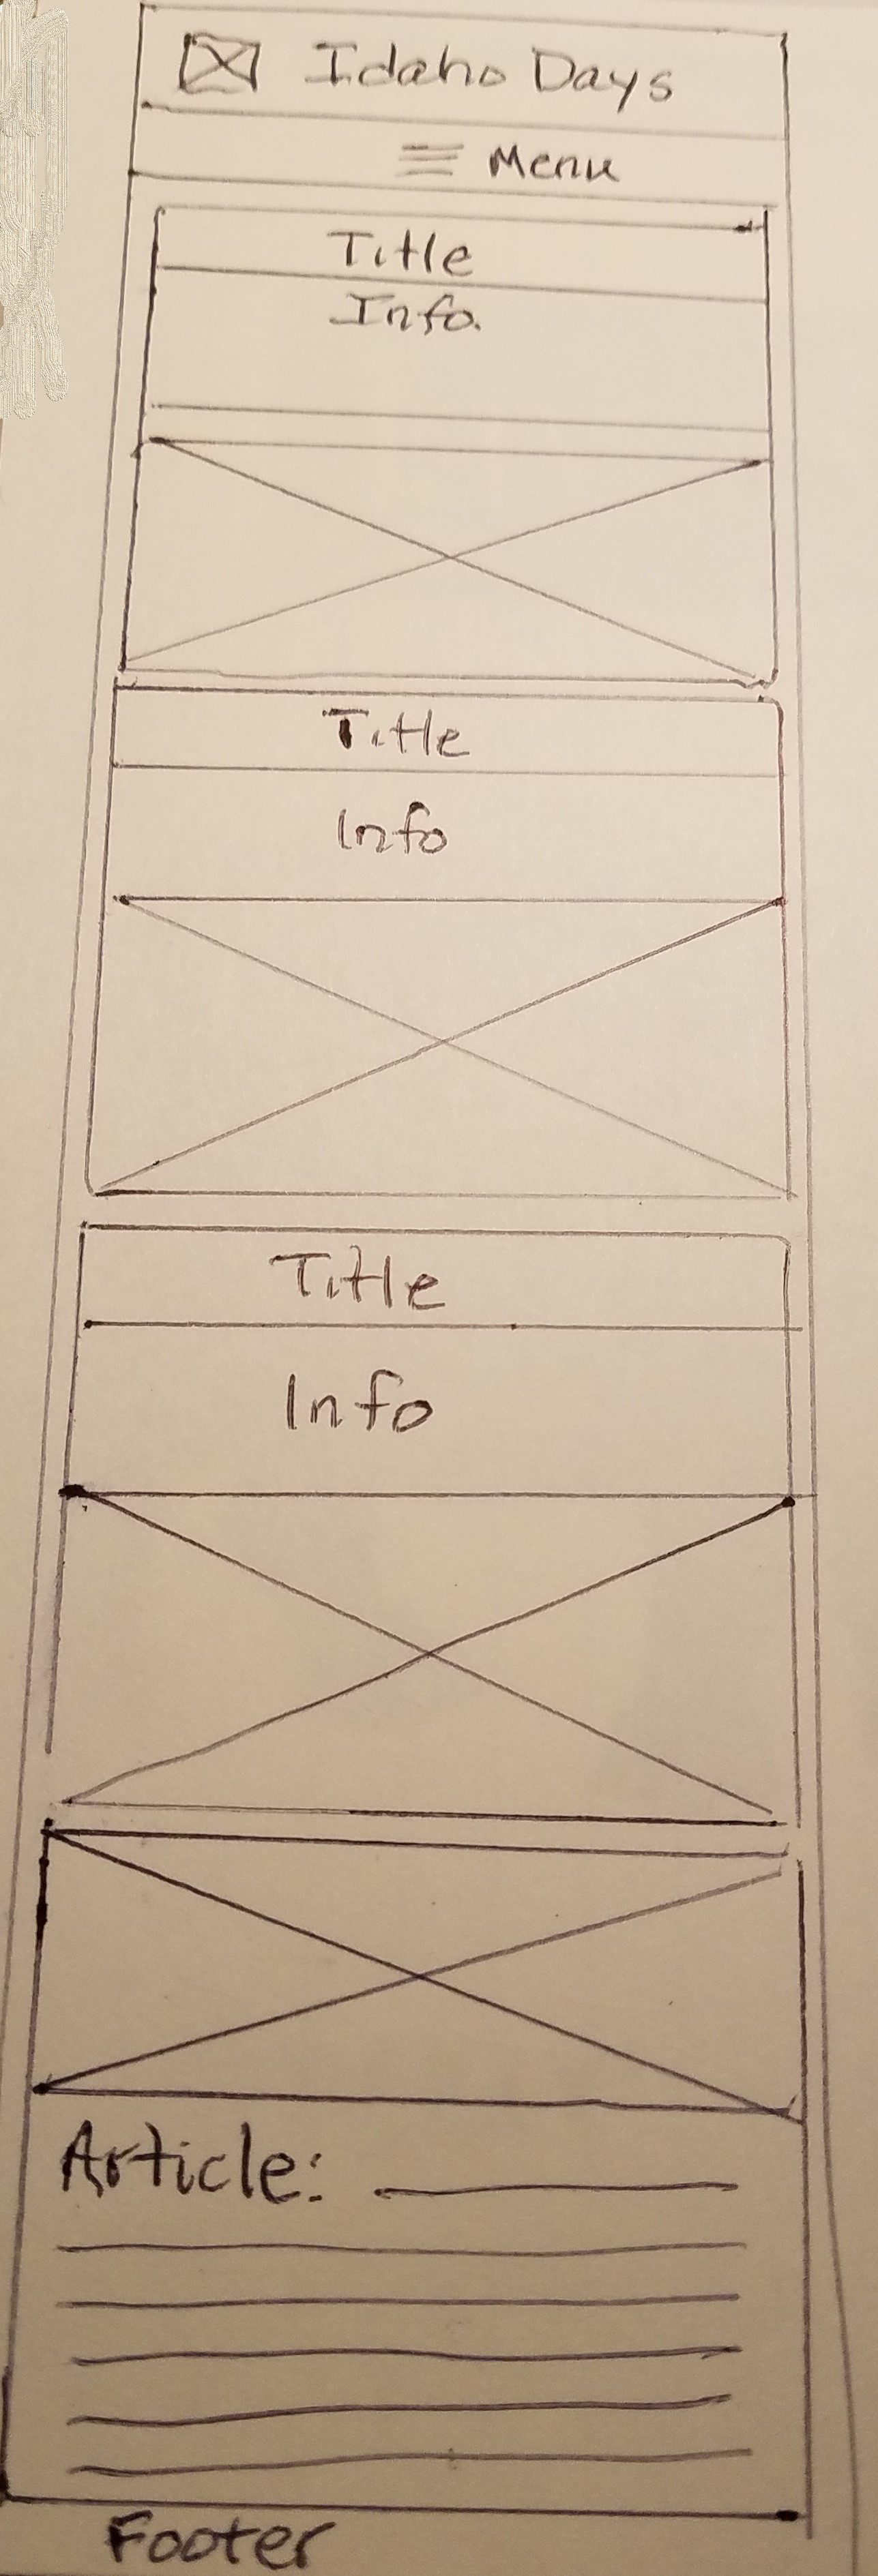 Idaho Days
Menu
Title
Info.
Title
Info
Title
Info
Article:
Footer